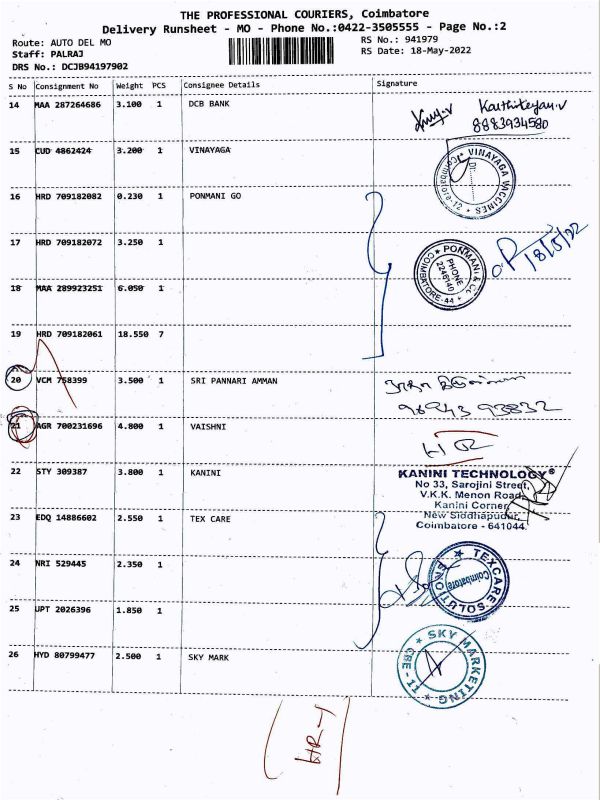 THE PROFESSIONAL COURIERS, Coimbatore
Delivery Runsheet - MO - Phone No.:0422-3505555 - Page No.:2
Route: AUTO DEL MO
Staff: PALRAJ
DRS No.: DCJB94197902
RS No.: 941979
RS Date: 18-May-2022
S No Consignment No Weight PCS Consignee Details Signature
14 MAA 287264686 3.100 1 DCB BANK
Karthikeyan.v
8883934580
15 CUD 4862424 3.200 1 VINAYAGA
VINAYAGA VACCINES
Coimbatore-12
16 HRD 709182082 0.230 1 PONMANI GO
17 HRD 709182072 3.250 1
PONMANI & Co
PHONE
2246140
COIMBATORE-44
18/5/22
18 MAA 289923251 6.050 1
19 HRD 709182061 18.550 7
20 VCM 758399 3.500 1 SRI PANNARI AMMAN
96943 93832
21 AGR 700231696 4.800 1 VAISHNI
22 STY 309387 3.800 1 KANINI
KANINI TECHNOLOGY
No 33, Sarojini Street,
V.K.K. Menon Road,
Kanini Corner,
New Siddhapudur,
Coimbatore - 641044.
23 EDQ 14886602 2.550 1 TEX CARE
24 NRI 529445 2.350 1
TEXCARE SOLUTIONS
Coimbatore
25 UPT 2026396 1.850 1
26 HYD 80799477 2.500 1 SKY MARK
SKY MARKETING
CBE-11
HR-1